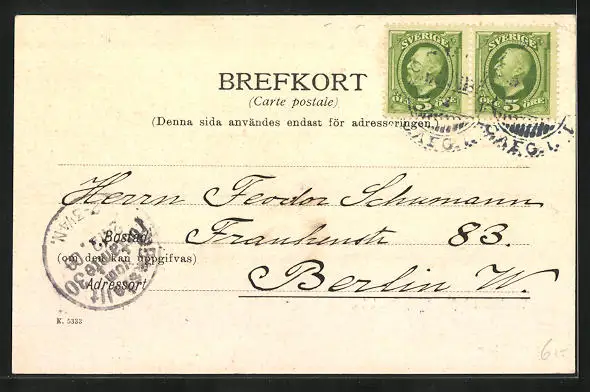 SVERIGE SVERIGE
5 ÖRE 5 ÖRE
BREFKORT
(Carte postale)
(Denna sida användes endast för adresseringen.)
Herrn Feodor Schumann
Bostad Frankenstr 83.
(om den kan uppgifvas)
Adressort Berlin W.
K. 5333
6.–